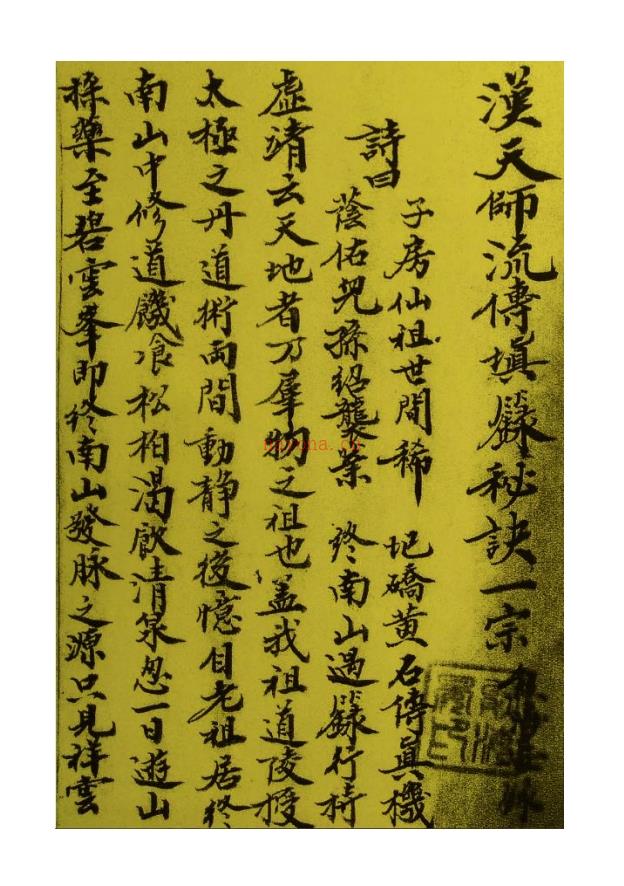 漢天師流傳填籙秘訣一宗
詩曰
子房仙祖世間稀 圯礄黄石傳真機
蔭佑兒孫紹襲業 终南山遇籙行持
虛靖云天地者乃羣物之祖也盖我祖道陵授
太極之丹道術両間動静之後憶自老祖居终
南山中修道饑飡松柏渴飲清泉忽一日遊山
採藥至碧雲峯即终南山發脉之源只見祥雲